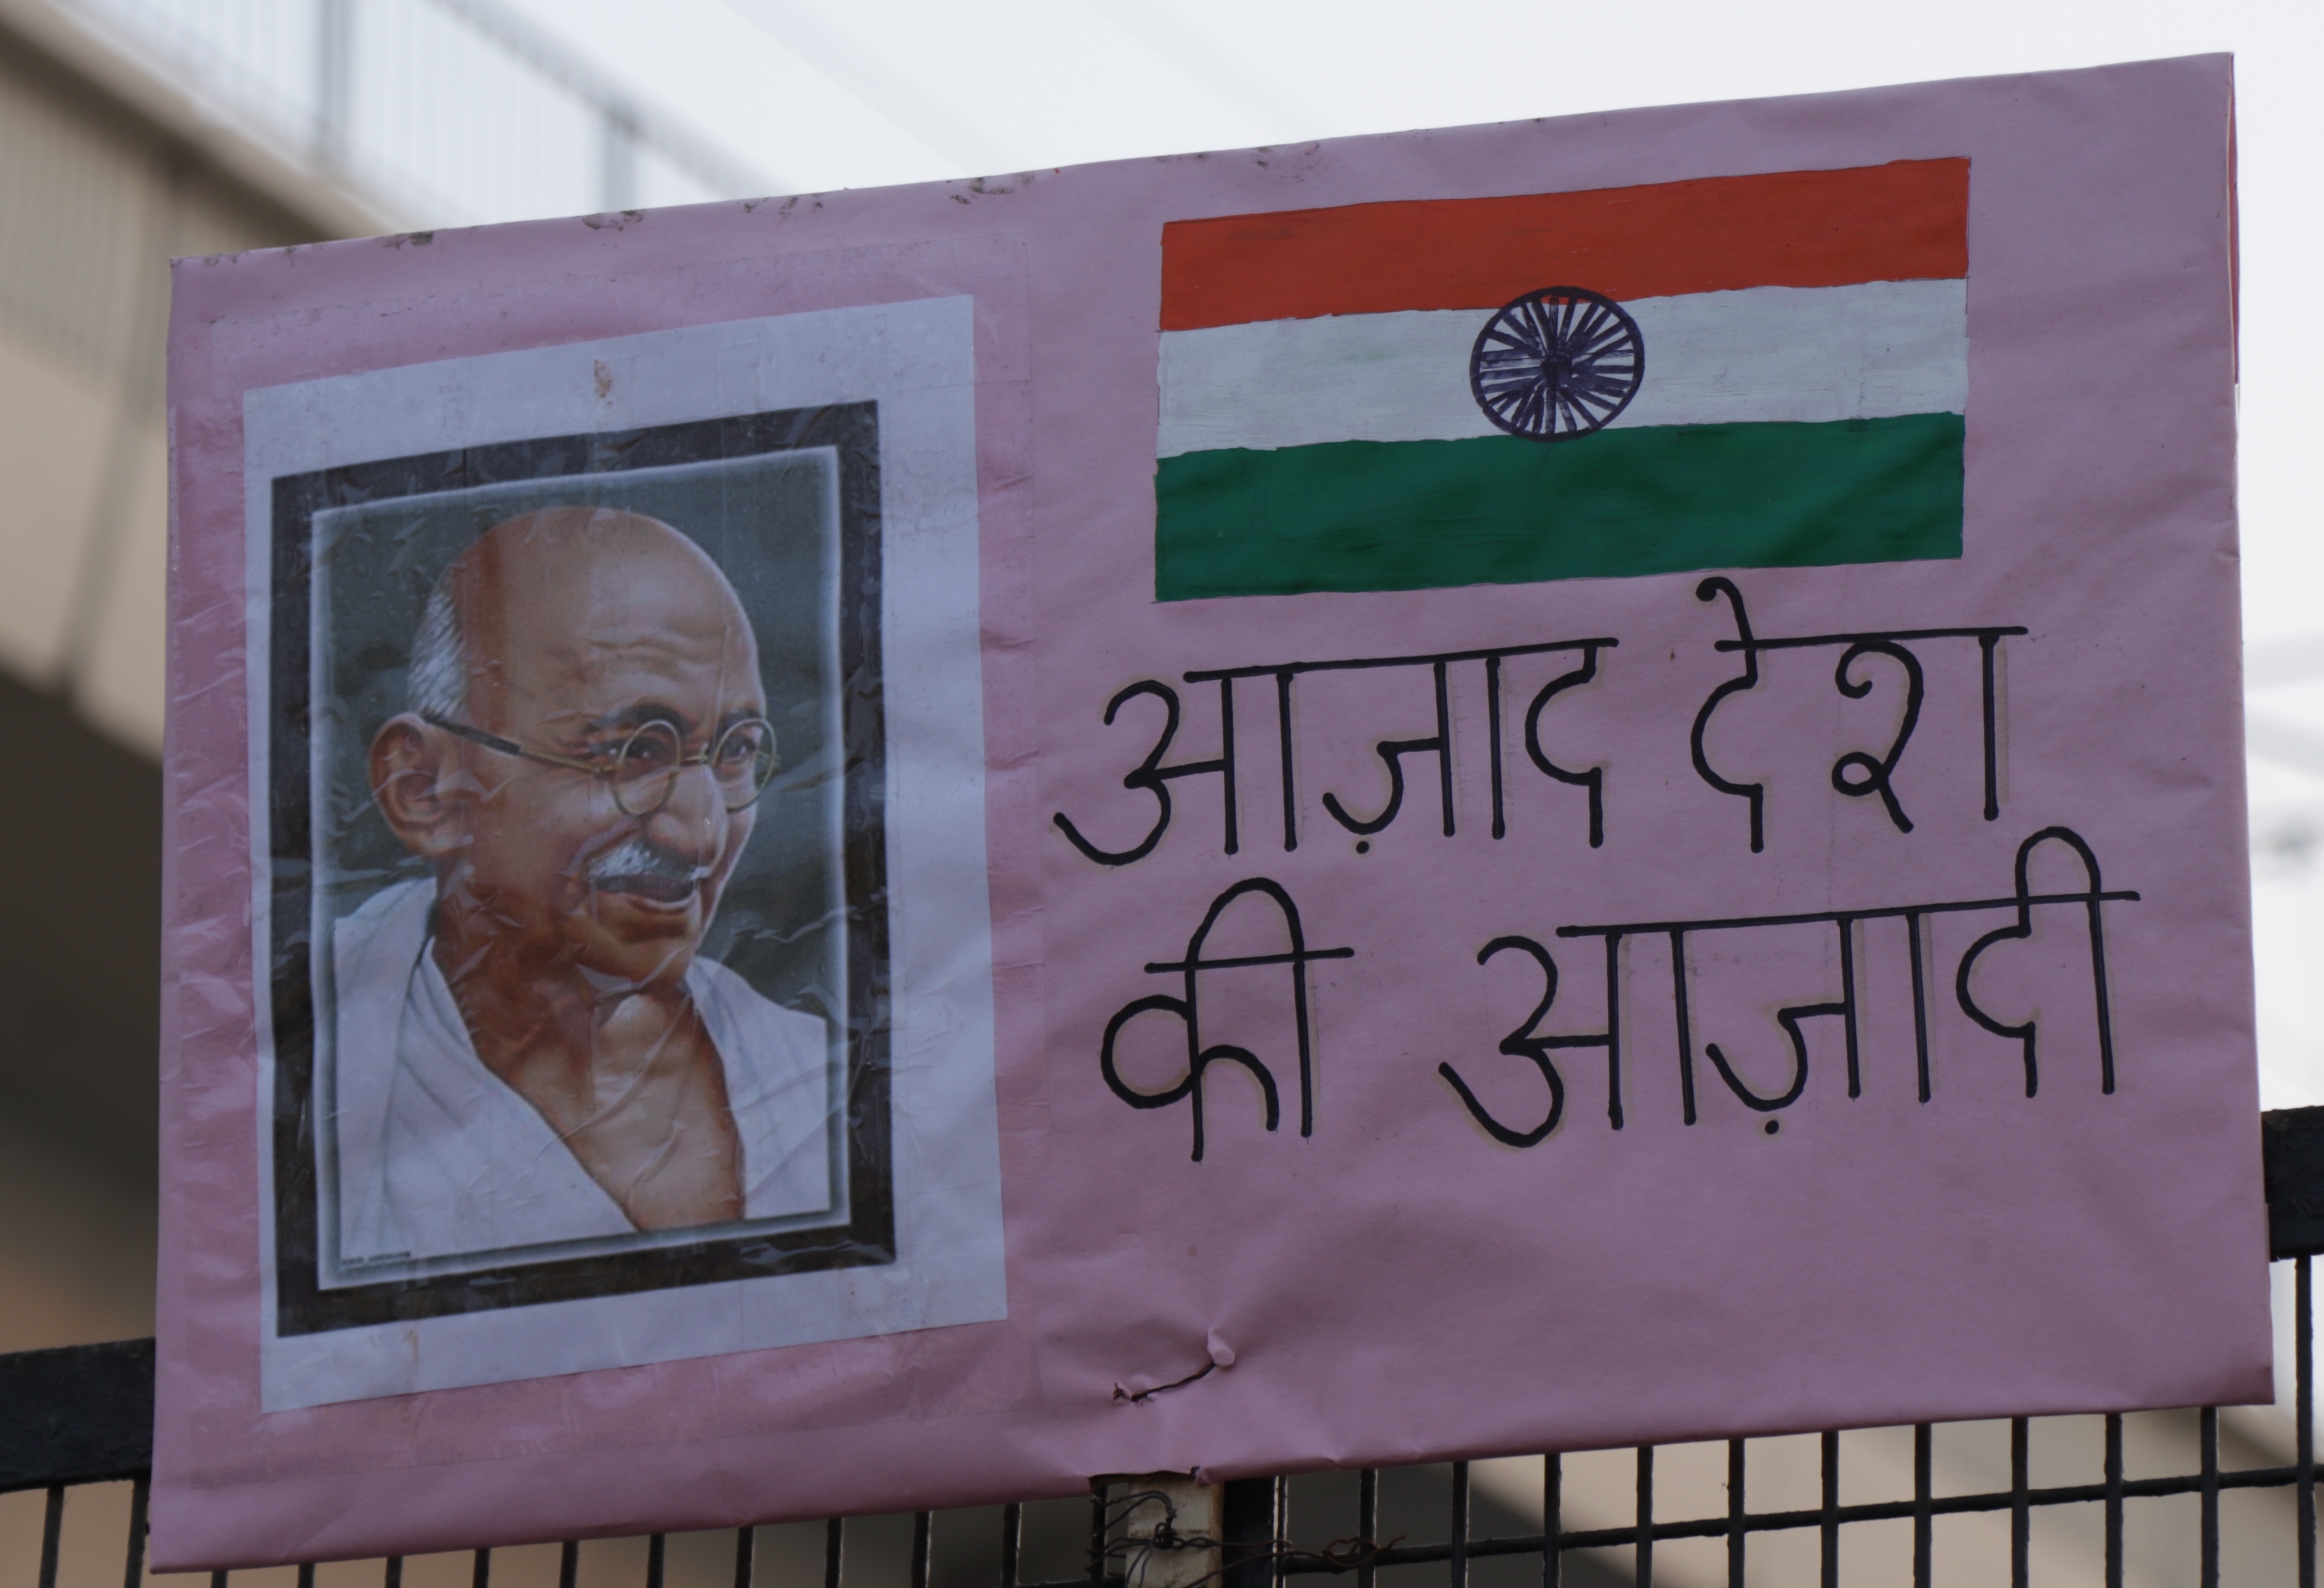 आज़ाद देश
की आज़ादी